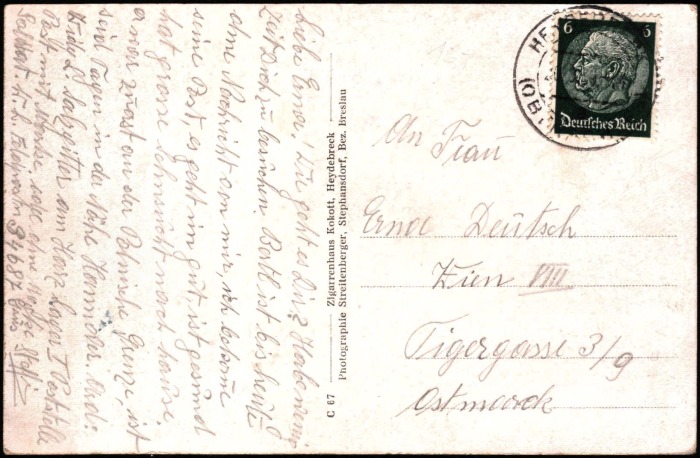 Liebe Erna! Wie geht es Dir? Habe wenig
Zeit Dich zu besuchen Bertl ist bis heute
ohne Nachricht von mir, ich bekome
seine Post, es geht im gut, ist gesund
hat grosse sehnsucht nach hause.
er war zuerst an der Polnische Grenze, ist
seid Tagen in der Nähe Hannover. Ard:
Salzgitter am Harz Lager I Poststelle
Post mit Marke, oder ohne Marke
34687 Gruss
C 67 Zigarrenhaus Kokott, Heydebreck
Photographie Streitenberger, Stephansdorf, Bez. Breslau
6 6
Deutsches Reich
An Frau
Erne Deutsch
Wien VIII
Tigergasse 3/9
Ostmark